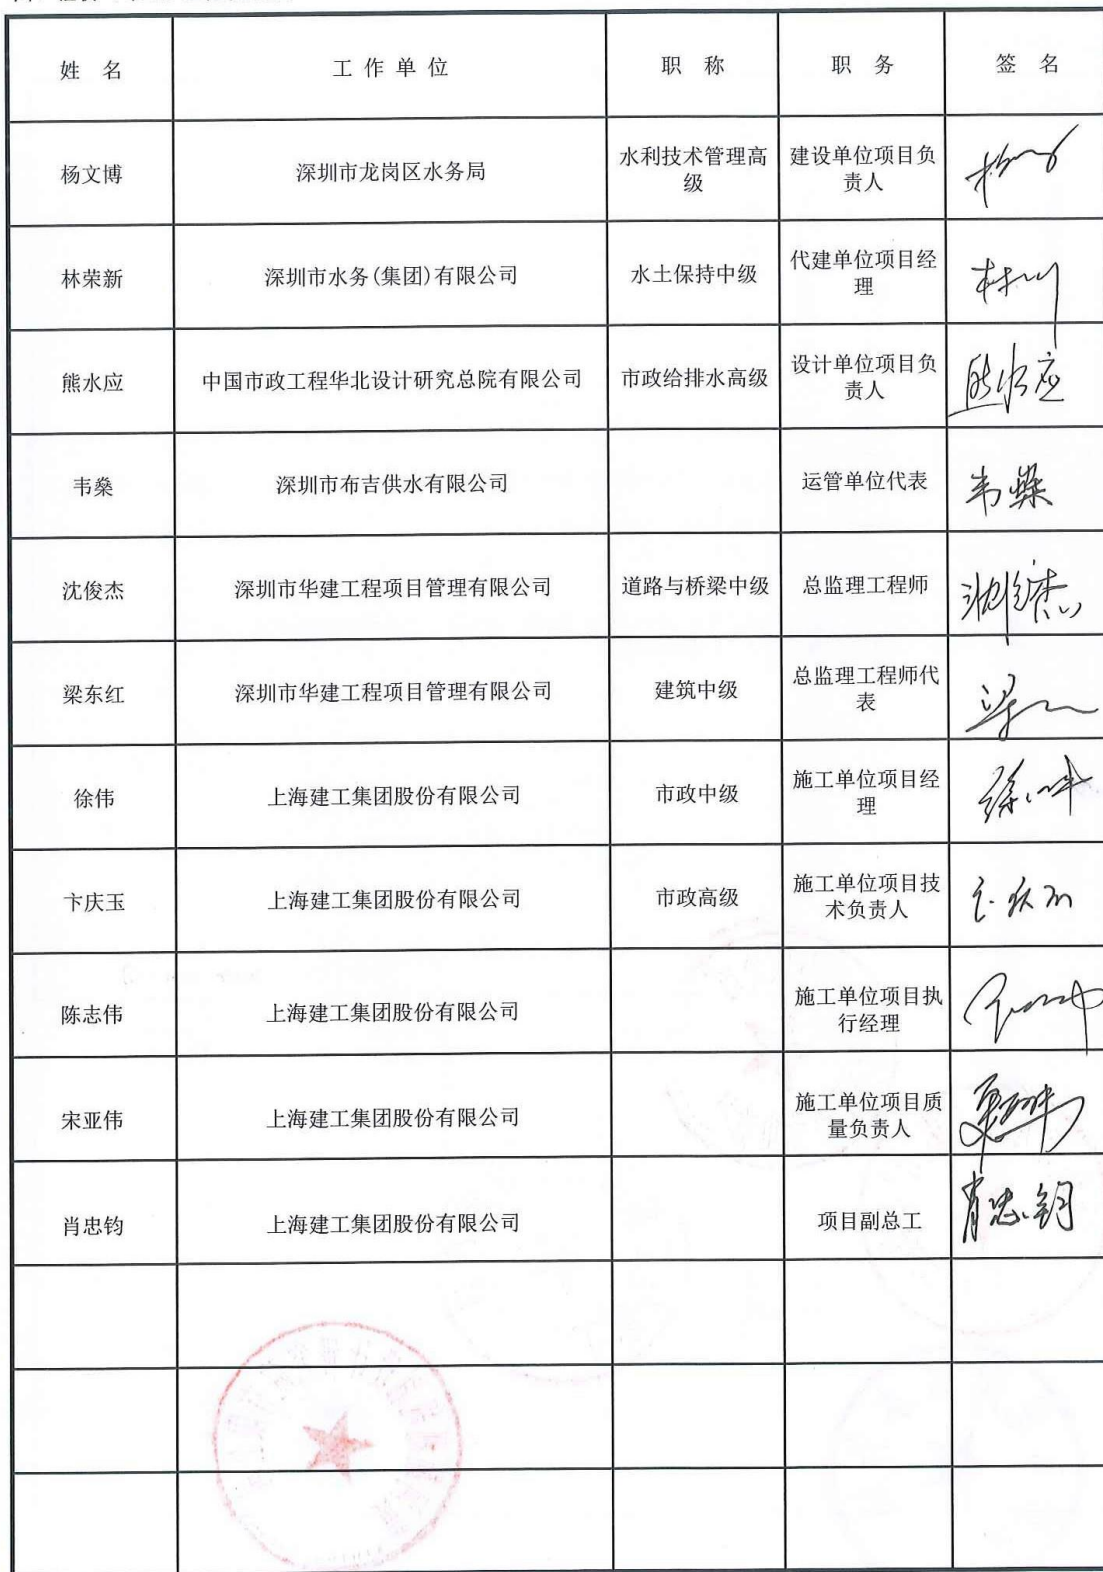 姓 名 工 作 单 位 职 称 职 务 签 名
杨文博 深圳市龙岗区水务局 水利技术管理高级 建设单位项目负责人
林荣新 深圳市水务(集团)有限公司 水土保持中级 代建单位项目经理
熊水应 中国市政工程华北设计研究总院有限公司 市政给排水高级 设计单位项目负责人 熊水应
韦燊 深圳市布吉供水有限公司 运管单位代表 韦燊
沈俊杰 深圳市华建工程项目管理有限公司 道路与桥梁中级 总监理工程师 沈俊杰
梁东红 深圳市华建工程项目管理有限公司 建筑中级 总监理工程师代表
徐伟 上海建工集团股份有限公司 市政中级 施工单位项目经理
卞庆玉 上海建工集团股份有限公司 市政高级 施工单位项目技术负责人
陈志伟 上海建工集团股份有限公司 施工单位项目执行经理
宋亚伟 上海建工集团股份有限公司 施工单位项目质量负责人
肖忠钧 上海建工集团股份有限公司 项目副总工 肖忠钧